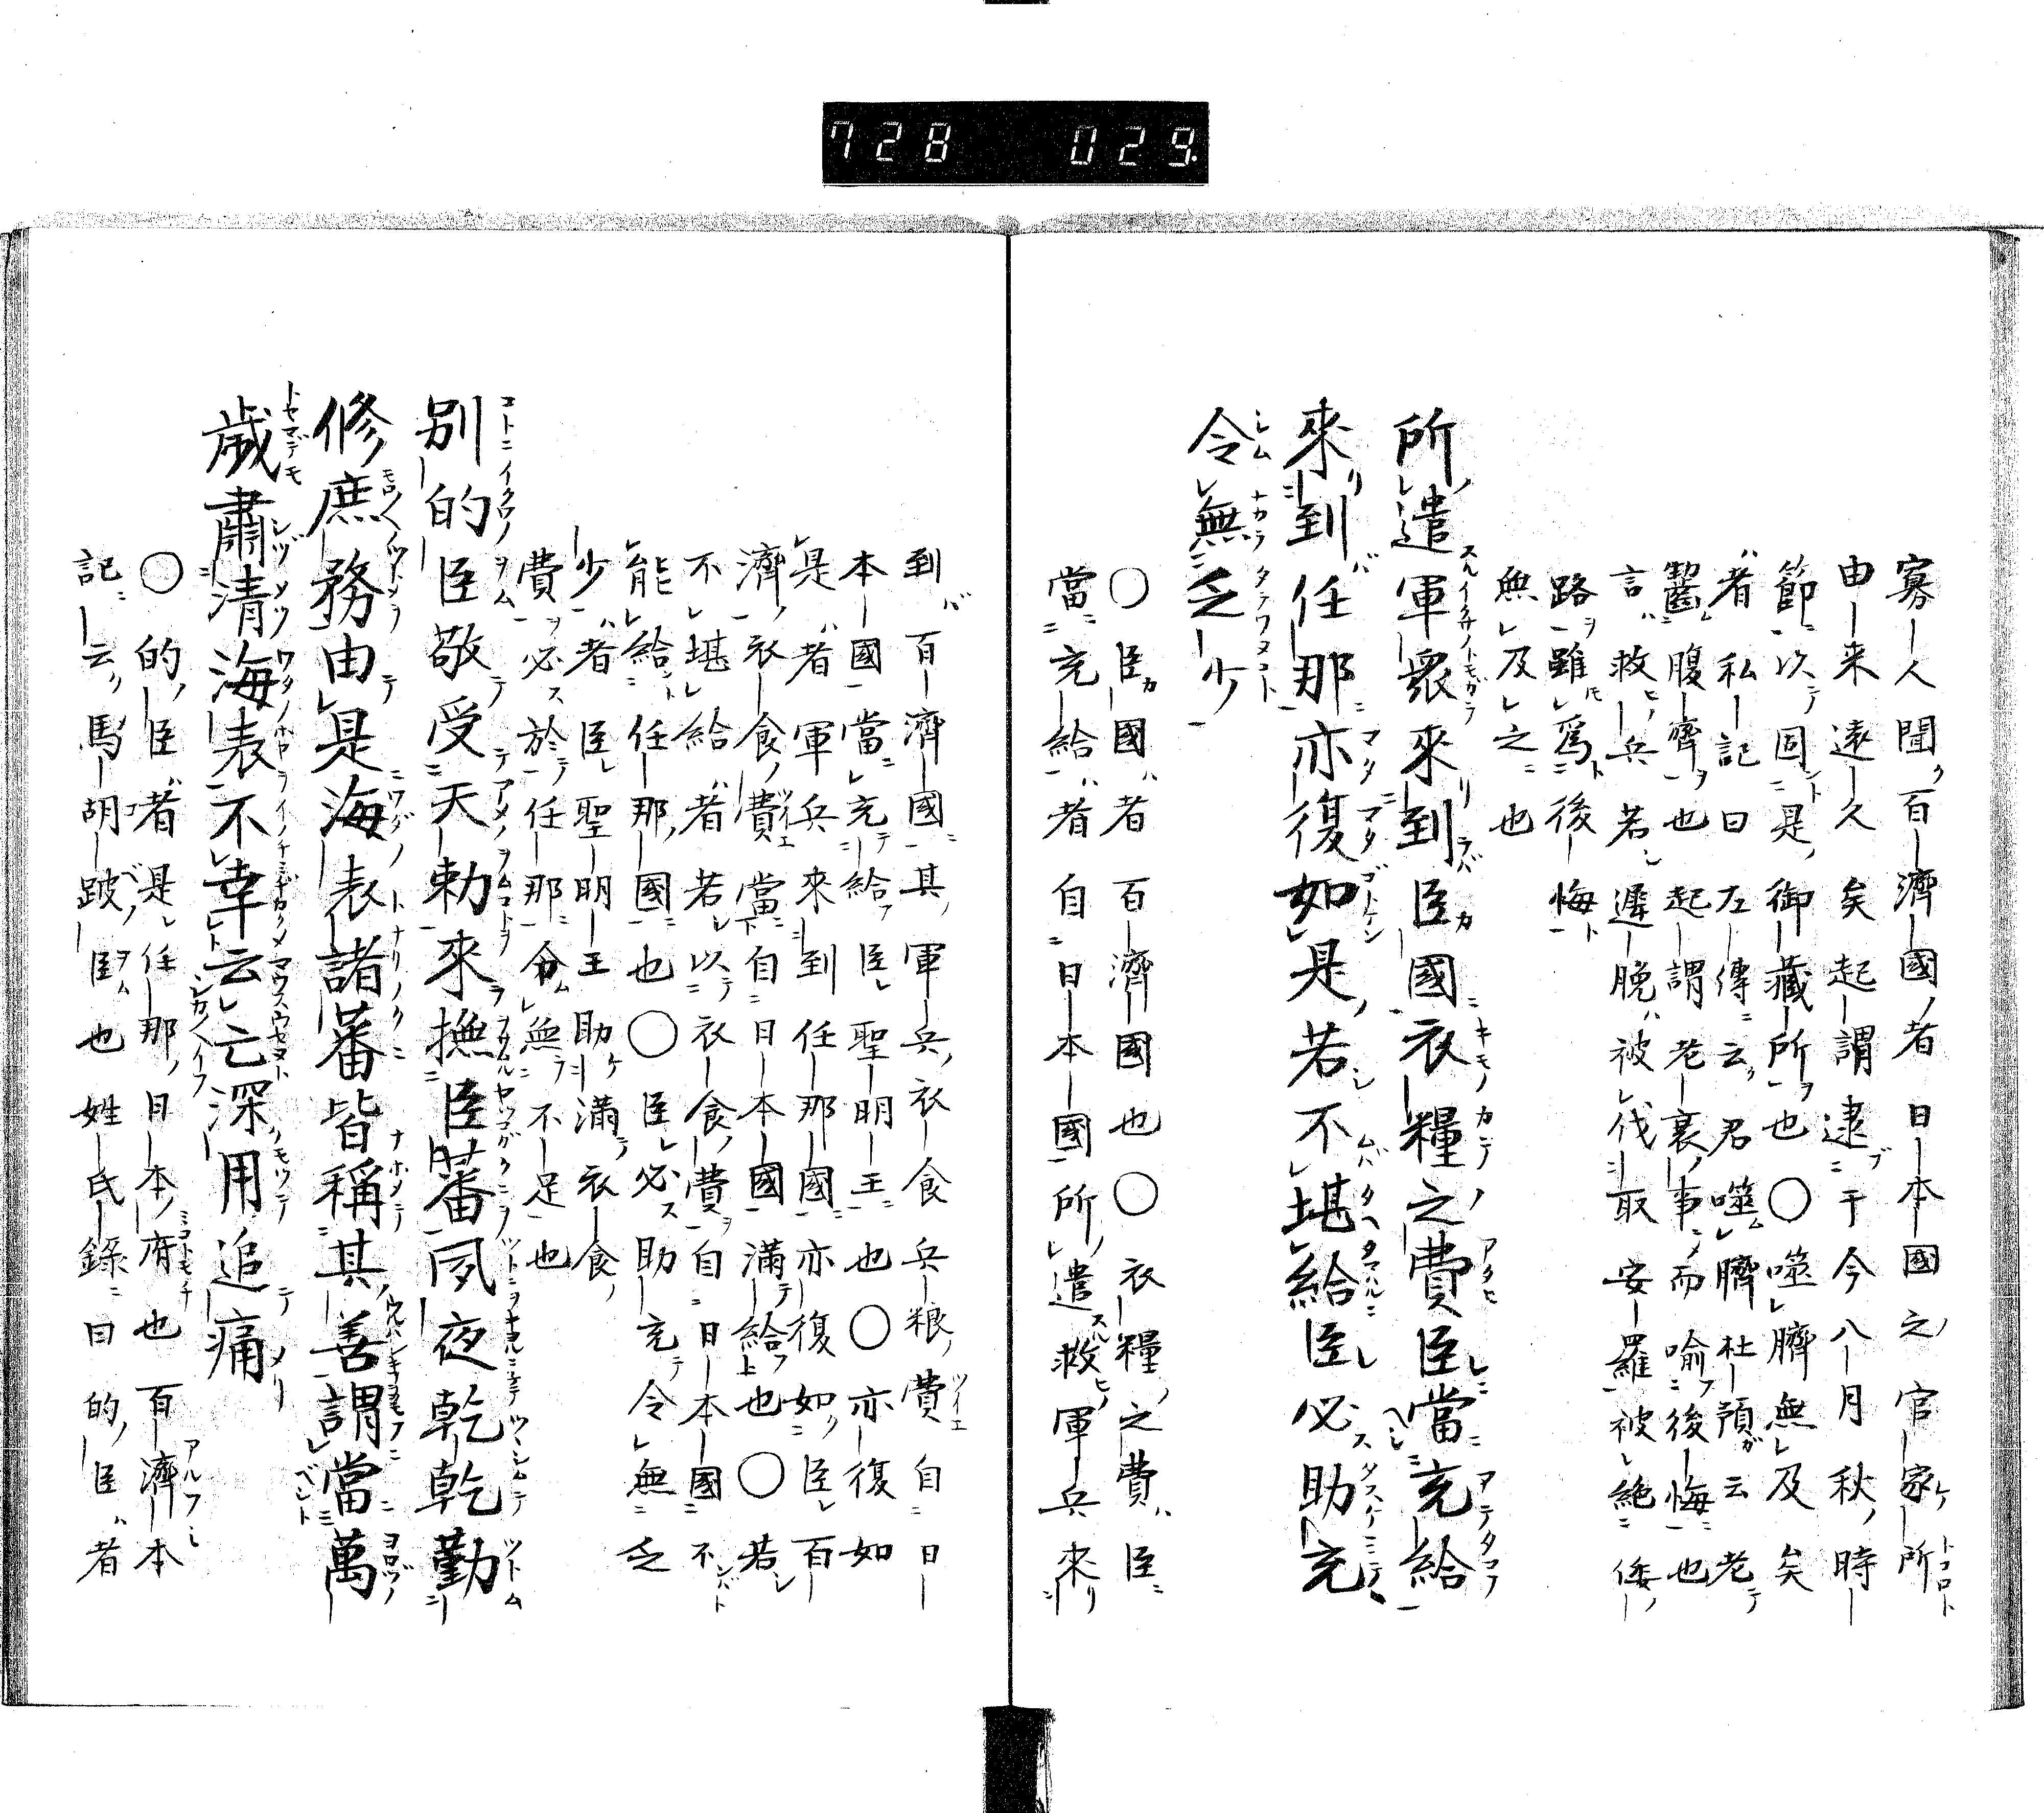 728 029
寡人聞百濟國者日本國之官家所
由来遠久矣起謂逮于今八月秋時
節以固是御藏所也○噬臍無及矣
者私記曰左傳云君噬臍杜預云老
齧腹齊也起謂老衰事而喻後悔也
言救兵若遲晚被伐取安羅被絶倭
路雖爲後悔
無及之也
所遣軍衆來到臣國衣糧之費臣當充給
來到任那亦復如是若不堪給臣必助充
令無乏少
○臣國者百濟國也○衣糧之費臣
當充給者自日本國所遣救軍兵来
到百濟國其軍兵衣食兵粮費自日
本國當充給臣聖明王也○亦復如
是者軍兵來到任那國亦復如臣百
濟衣食費當自日本國滿給也○若
不堪給者若以衣食費自日本國不
能給任那國也○臣必助充令無乏
少者臣聖明王助滿衣食
費必於任那令無不足也
別的臣敬受天勅來撫臣蕃夙夜乾乾勤
修庶務由是海表諸蕃皆稱其善謂當萬
歲肅清海表不幸云亡深用追痛
○的臣者是任那日本府也百濟本
記云馬胡跛臣也姓氏錄曰的臣者